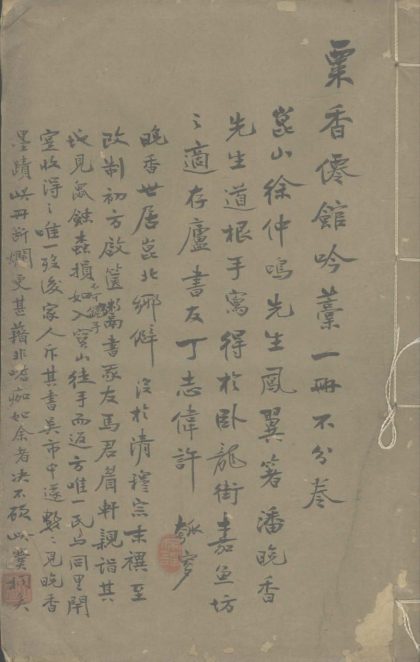 粟香僊館吟藁一冊不分卷
崑山徐仲鳴先生鳳翼著潘晚香
先生道根手寫得於臥龍街嘉魚坊
之適存廬書友丁志偉許
晚香世居崑北鄉僻沒於清穆宗末禩至
改制初方啟篋鬻書家友馬君眉軒親詣其
城見鼠蝕蟲損如入寶山徒手而返方唯一氏與同里閈
室收得之唯一歿後家人斥其書吳市中遂數數見晚香
墨蹟此冊斷爛更甚藉非嗜痂如余者決不顧此